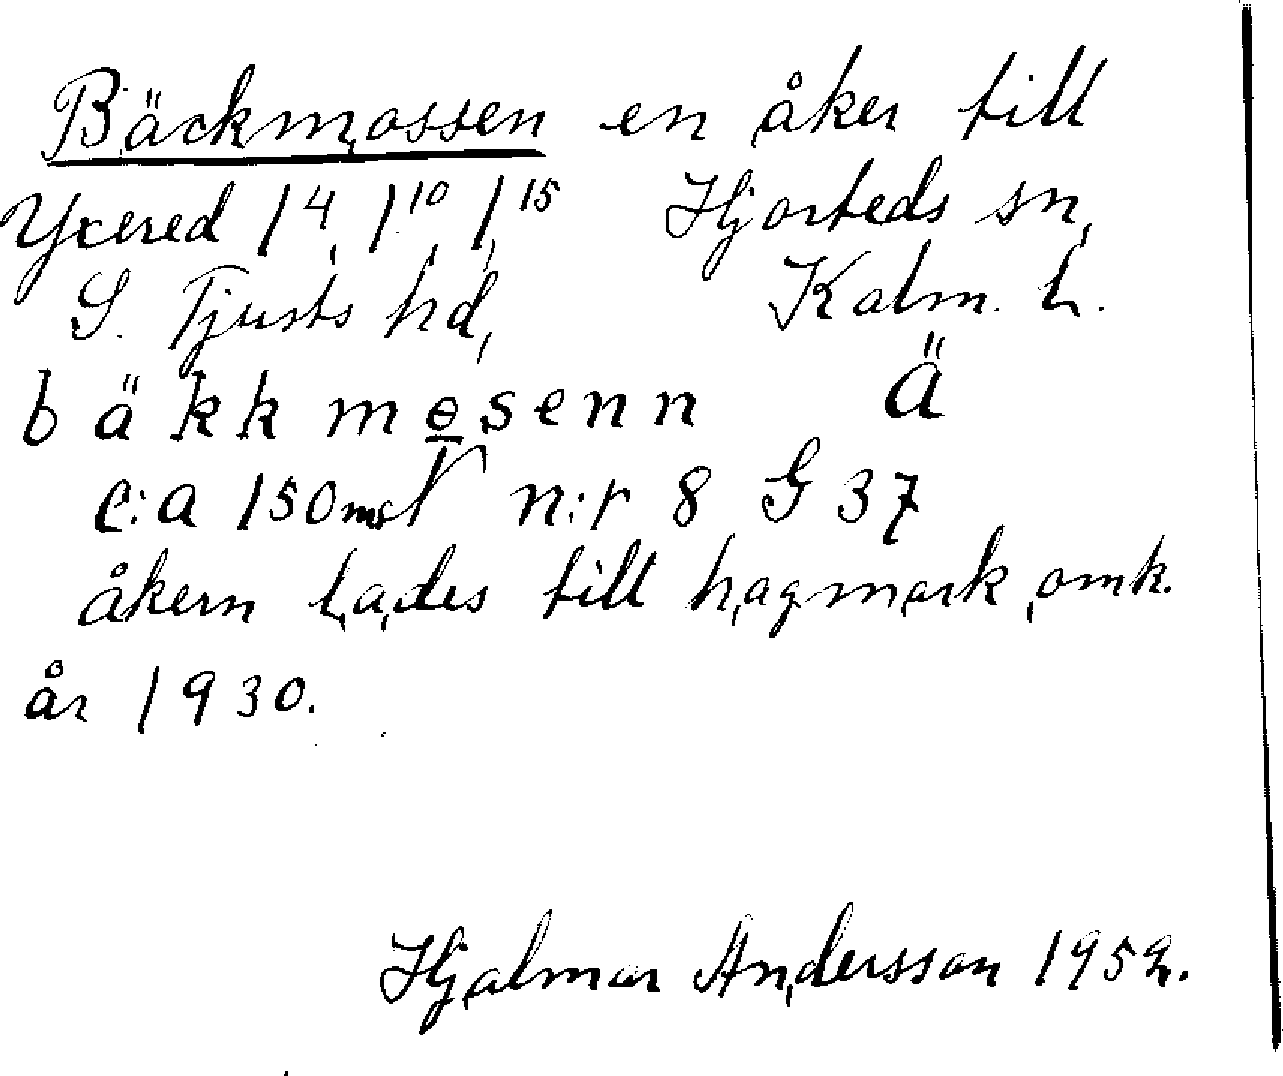 Bäckmossen en åker till
Yxered 1⁴, 1¹⁰, 1¹⁵ Hjorteds sn,
S. Tjusts hd, Kalm. L.
bäkkmosenn Ä
c:a 150 met N n:r 8 G 37
åkern lades till hagmark omk.
år 1930.
Hjalmar Andersson 1952.